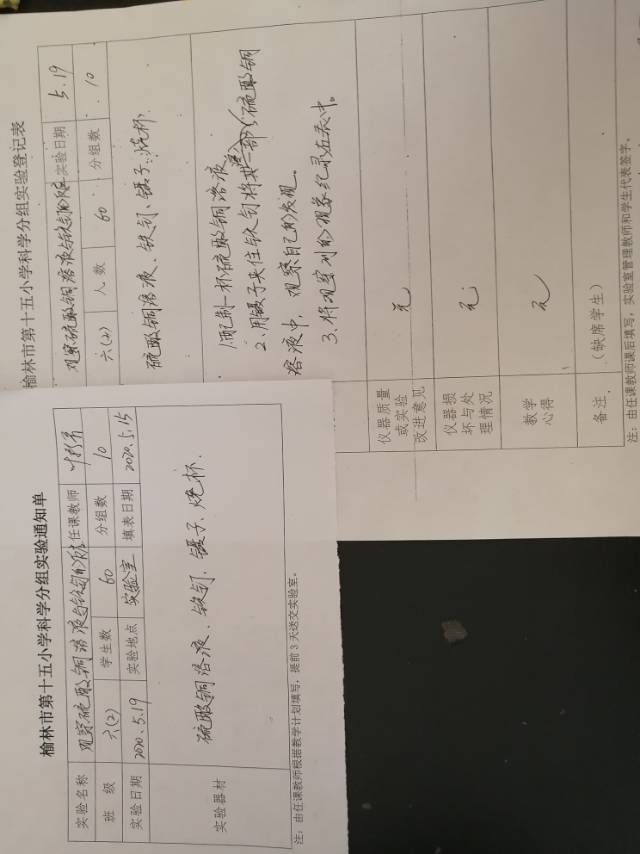 榆林市第十五小学科学分组实验通知单
实验名称 观察硫酸铜溶液与铁钉的反应 任课教师
班 级 六(2) 学生数 60 分组数 10
实验日期 2020.5.19 实验地点 实验室 填表日期 2020.5.15
实验器材 硫酸铜溶液、铁钉、镊子、烧杯.
注：由任课教师根据教学计划填写，提前 3 天送交实验室。
榆林市第十五小学科学分组实验登记表
观察硫酸铜溶液与铁钉的反应 实验日期 5.19
六(2) 人 数 60 分组数 10
硫酸铜溶液、铁钉、镊子、烧杯.
1.配制一杯硫酸铜溶液
2.用镊子夹住铁钉将其一部分浸入硫酸铜
溶液中，观察自己的发现。
3.将观察到的现象纪录在表中。
仪器质量 或实验 改进意见 无
仪器损 坏与处 理情况 无
教学 心得 无
备注 （缺席学生）
注：由任课教师课后填写，实验室管理教师和学生代表签字。